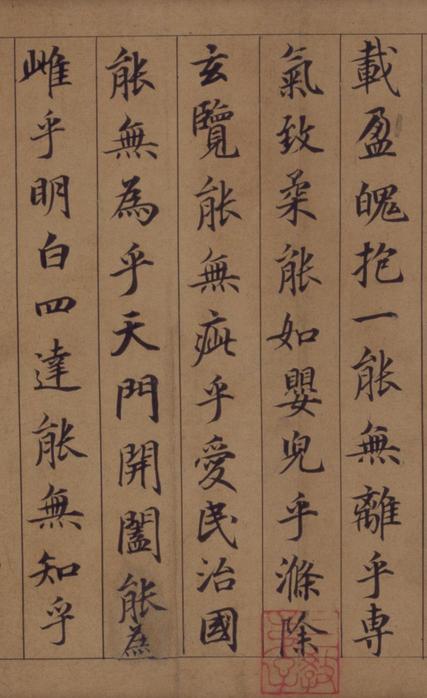 載盈魄抱一能無離乎専
氣致柔能如嬰兒乎滌除
玄覽能無疵乎愛民治國
能無為乎天門開闔能為
雌乎明白四達能無知乎